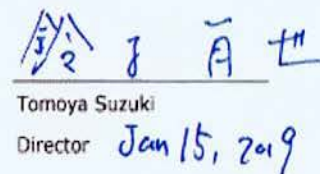 Tomoya Suzuki
Director Jan 15, 2019